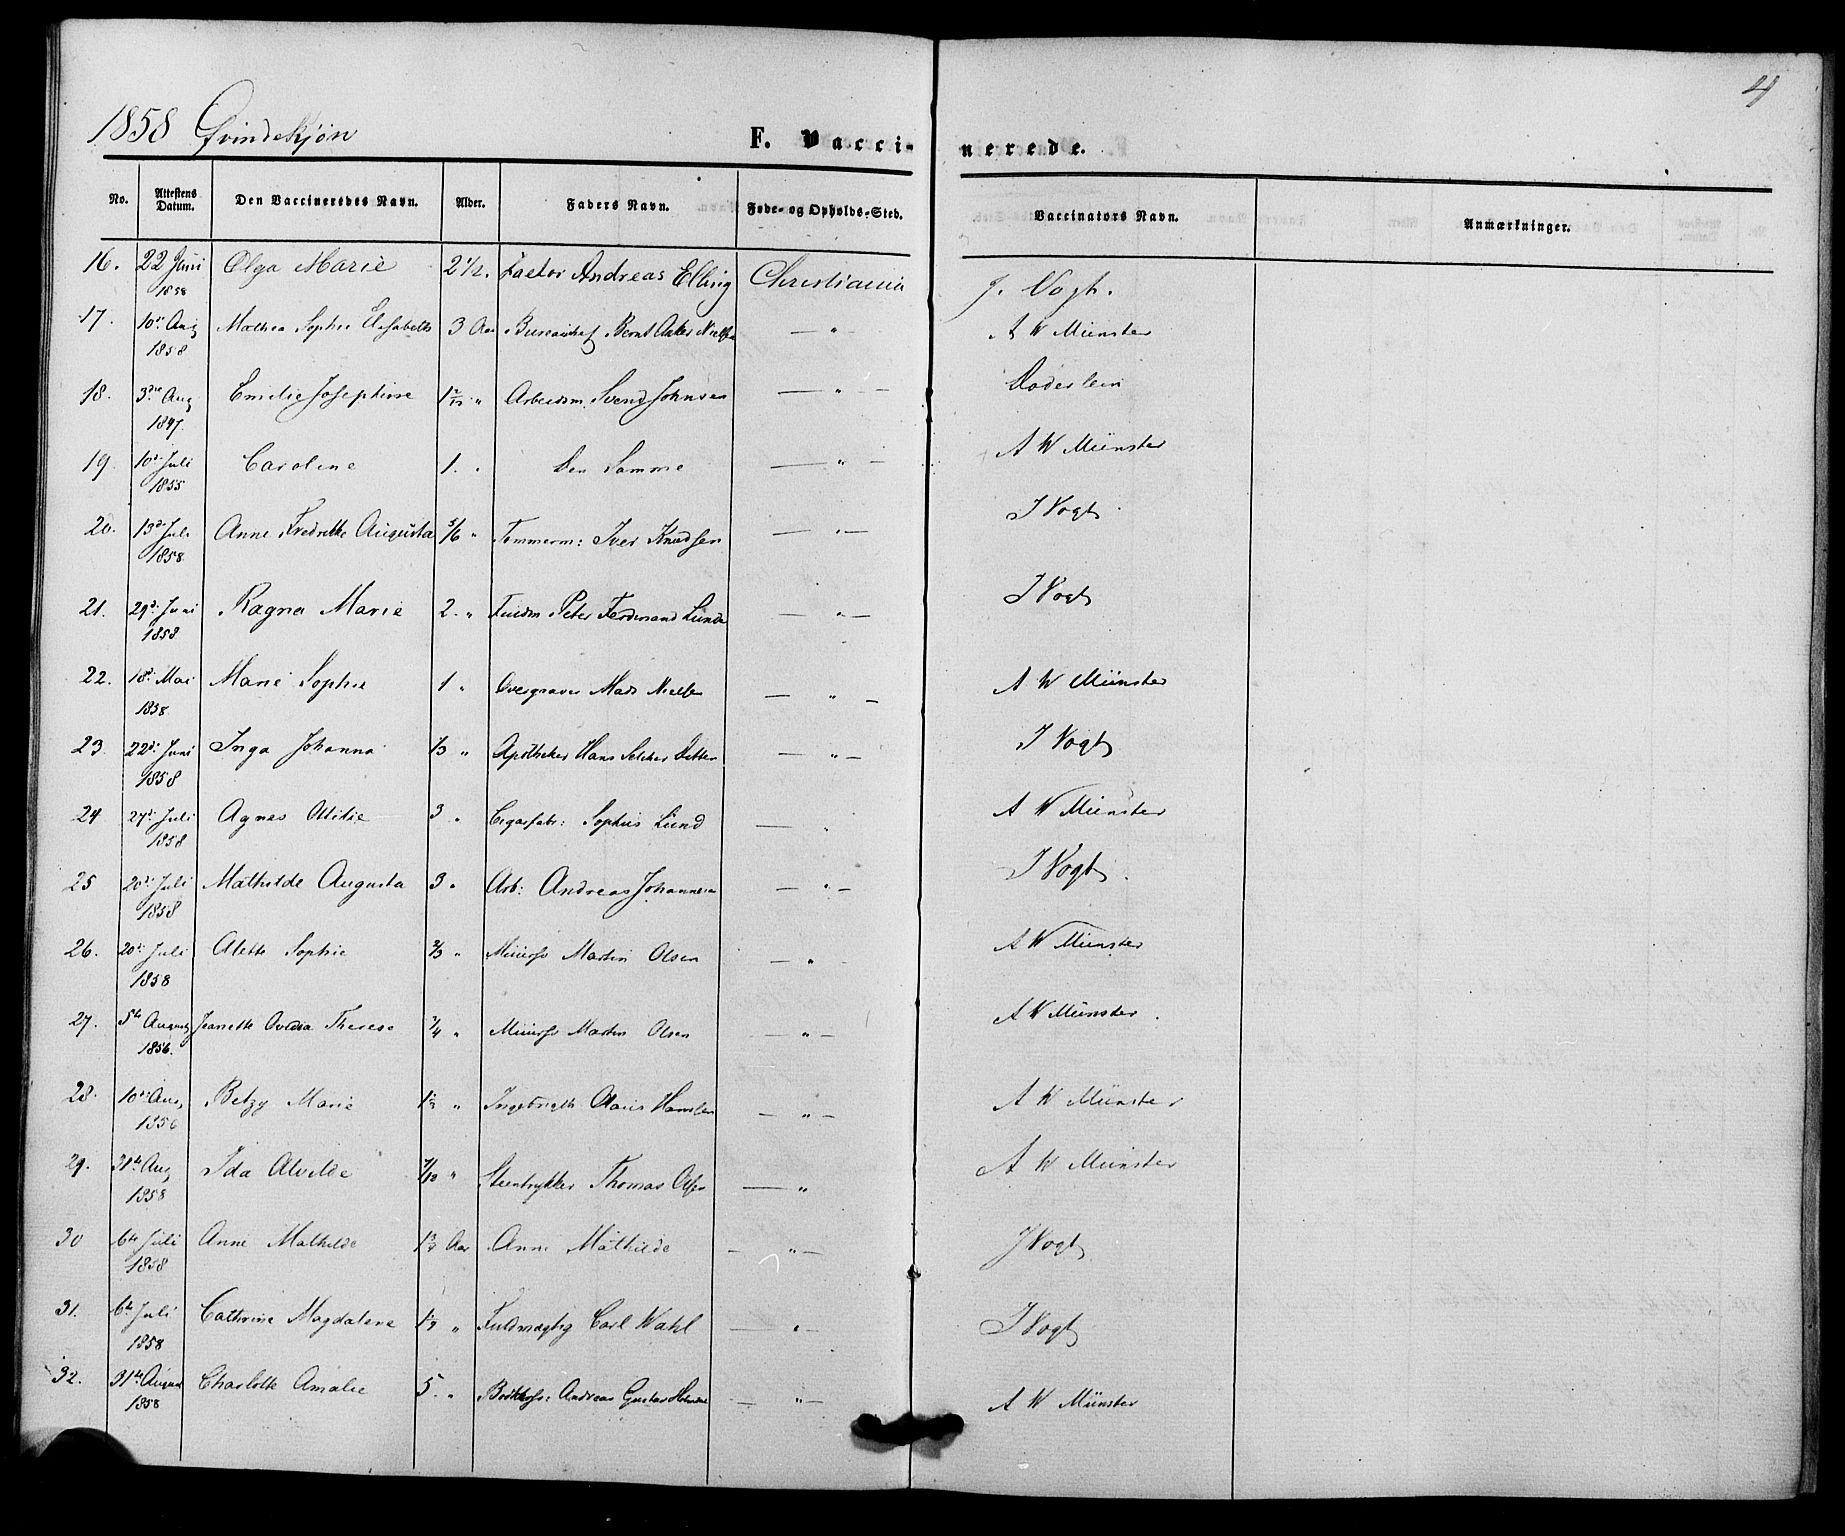 4
1858 Qvindekjøn
F. Vaccinerede.
No. Attestens Datum. Den Vaccineredes Navn. Alder. Faders Navn. Føde- og Opholds-Sted. Vaccinators Navn. Anmærkninger.
16. 22 Juni 1858 Olga Marie 2 1/2. Factor Andreas Elling Christiania J. Vogt.
17. 10de Aug 1858 Mathea Sophie Elisabeth 3 Aar Bernt Anker — " A W Münster
18. 3die Aug 1847. Emilie Josephine " Arbeidsm. Svend Johnsen — " —
19. 10de Juli 1855 Caroline 1. " Den Samme — " — A W Münster
20. 13de Juli 1858. Anne Fredrikke Augusta 5/6 " Tømmerm: Iver Knudsen — " — J Vogt
21. 29de Juni 1858. Ragna Marie 2. " Peter Ferdinand Lunde — " — J Vogt
22. 18de Mai 1858. Marie Sophie 1 " Mads Nielsen — " — A W Münster
23. 22de Juni 1858 Inga Johanna 1/3 " Apotheker Hans — " — J Vogt
24 27de Juli 1858 Agnes Otilie 3 " Cigarfabr: Sophus Lund — " A W Münster
25 20de Juli 1858 Mathilde Augusta 3 " Arb: Andreas Johannesen — " — J Vogt.
26. 20de Juli 1858 Alette Sophie 2/3 " Muurs Martin Olsen — " A W Münster
27. 5te August 1856. Jeanette Ovedia Therese 3/4 " Muurs Martin Olsen — " — A W Münster.
28. 10de Aug 1856 Betzy Marie " Olaus Hansen — " — A W Münster
29. 31te Aug 1858 Ida Alvilde 7/12 " Steentrykker Thomas Olsen — " A W Münster
30 6te Juli 1858 Anne Mathilde 1 3/4 Aar Anne Mathilde — " — J Vogt
31. 6te Juli 1858 Cathrine Magdalene " Fuldmægtig Carl Wahl — " — J Vogt
32. 31te August 1858 Charlotte Amalie 5. " Andreas Gustav — " — A W Münster